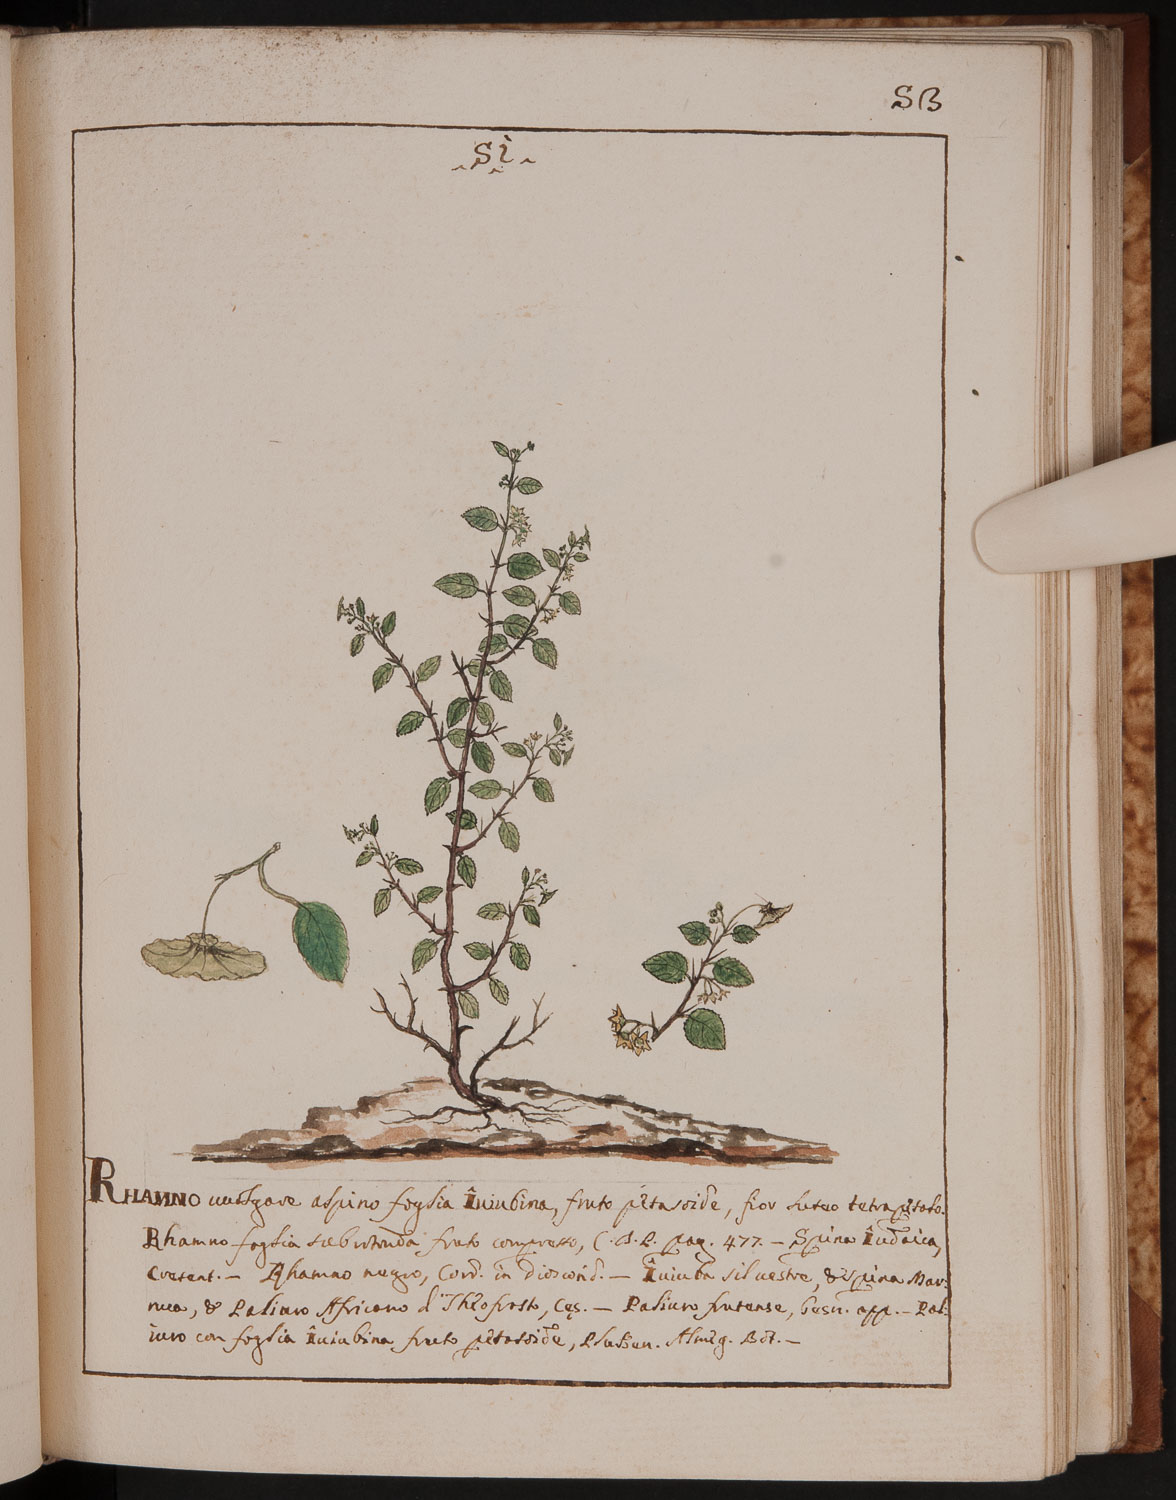 SB
Si
RHAMNO vulgare aspino foglia Iuiubina, fruto petasoide, fior luteo tetrapetolo.
Rhamno foglia subrotonda fruto compresso, C. B. P. pag. 477. - Spina Iudaica,
- Rhamno negro, Cord. in dioscorid. - Iuiuba silvestre, & spina Mar-
ruca, & Paliuro Africano d Theofrasto, Cęs. - Paliuro frutense, app. - Pal-
iuro con foglia Iuiubina fruto petasoide, Almag. Bot. -